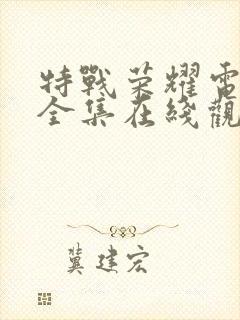 特戰荣耀電
全集在綫觀
冀建宏